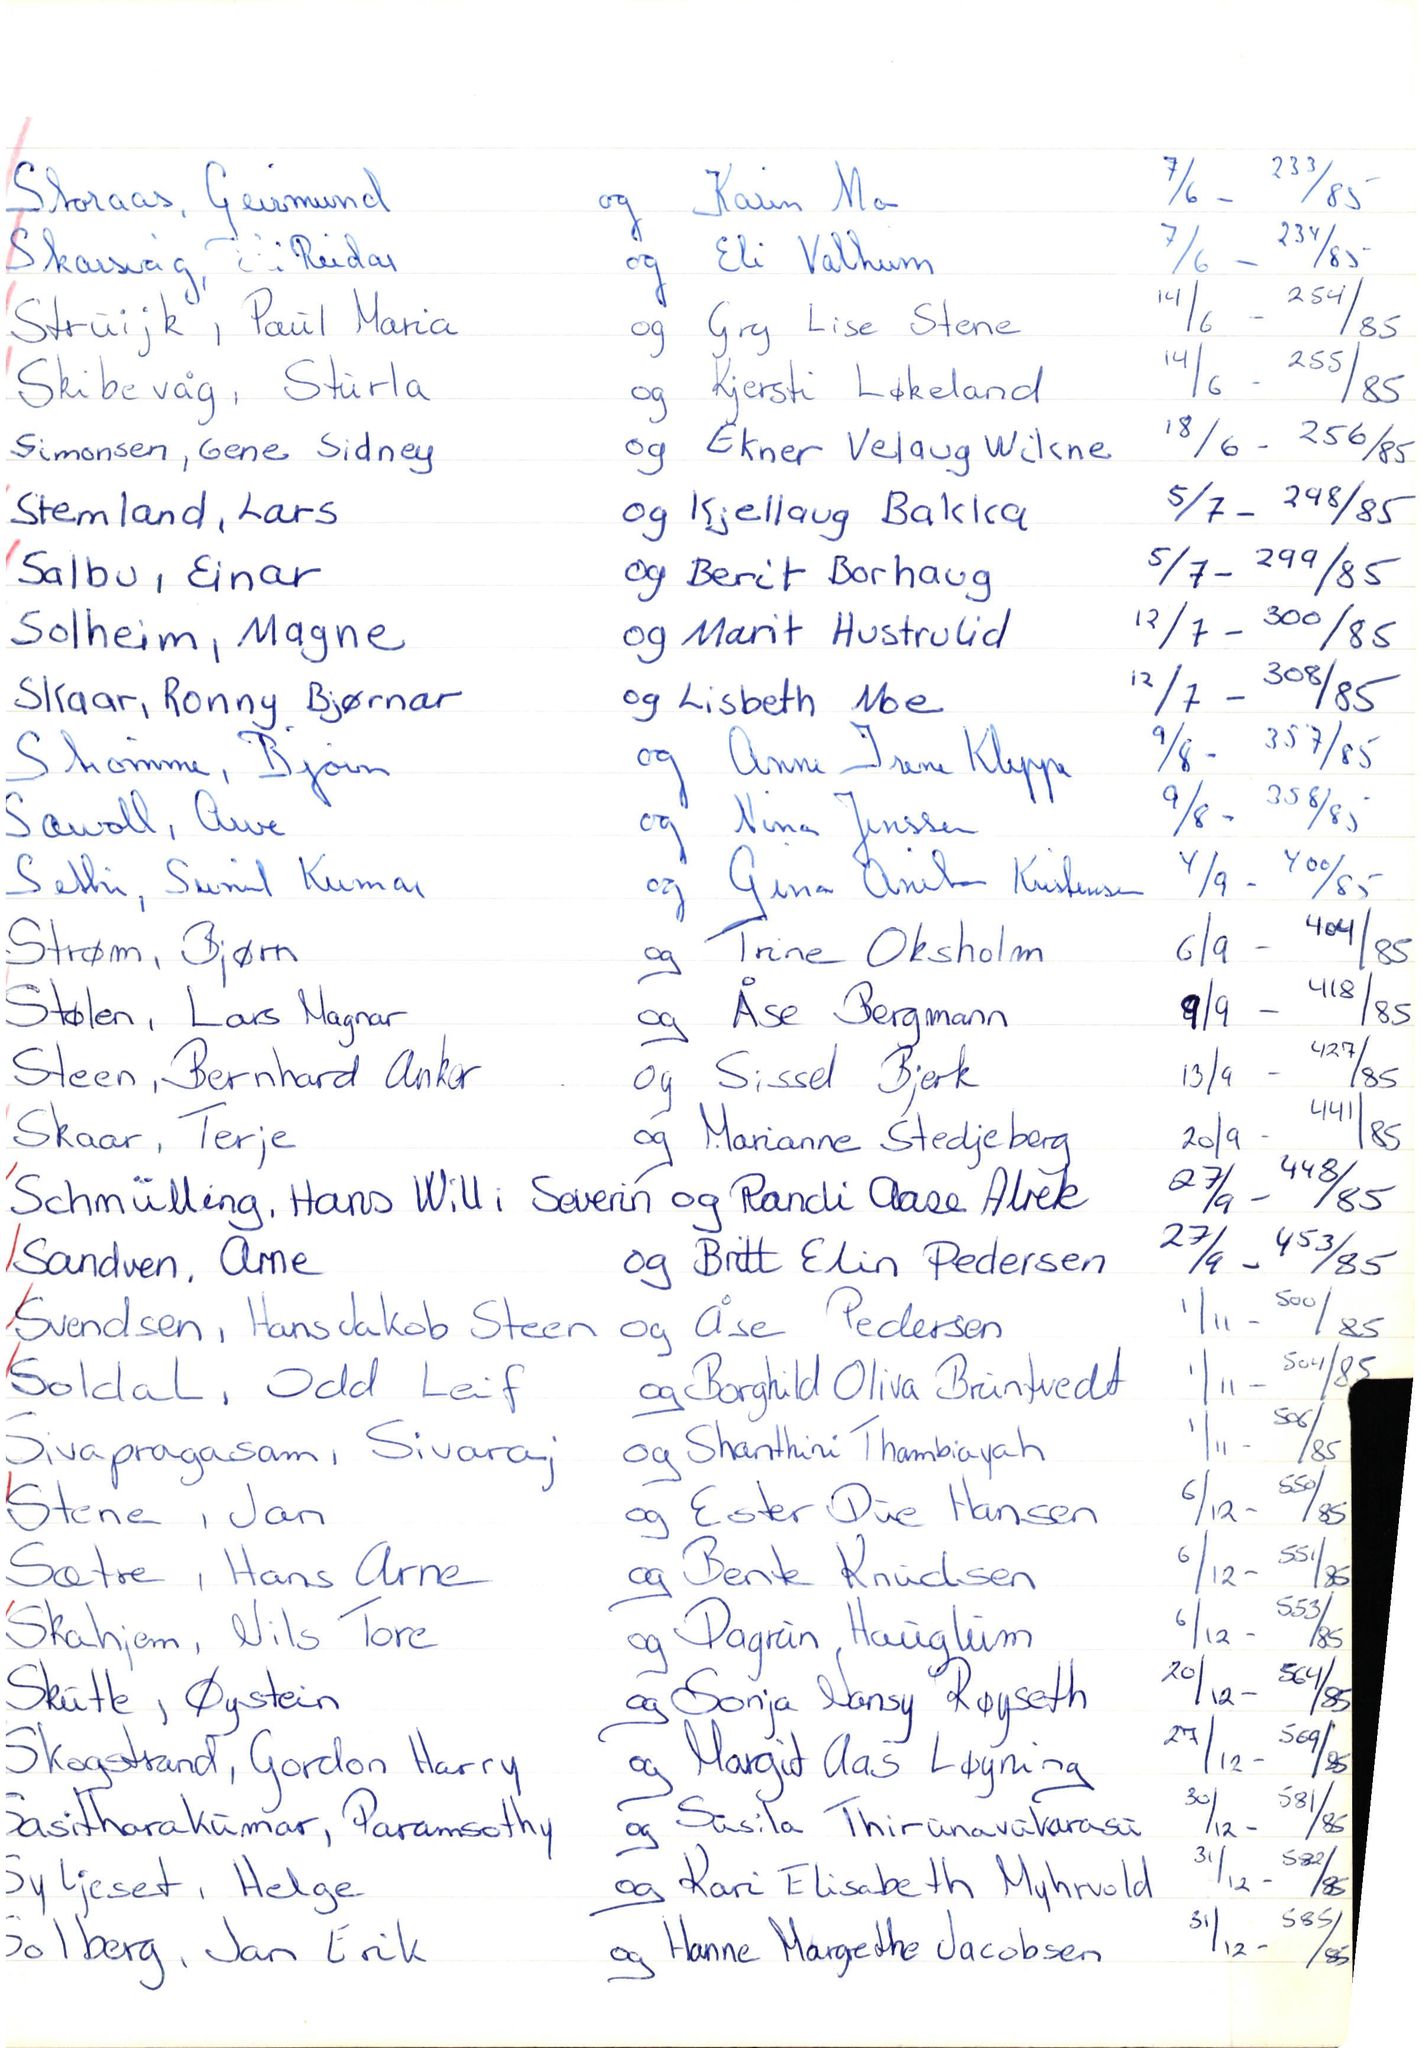 Storaas, Geirmund og Karin Mo 7/6 - 233/85
Skarsvåg, Reidar og Eli Valheim 7/6 - 234/85
Struijk, Paul Maria og Gry Lise Stene 14/6 - 254/85
Skibevåg, Sturla og Kjersti Løkeland 14/6 - 255/85
Simonsen, Gene Sidney og Ekner Velaug Wikne 18/6 - 256/85
Stemland, Lars og Kjellaug Bakka 5/7 - 298/85
Salbu, Einar og Berit Borhaug 5/7 - 299/85
Solheim, Magne og Marit Hustrulid 12/7 - 300/85
Skaar, Ronny Bjørnar og Lisbeth Moe 12/7 - 308/85
Strømme, Bjørn og Anne Irene Kleppe 9/8 - 357/85
Sævoll, Arve og Nina Jenssen 9/8 - 358/85
Sethi, Sunil Kumar og Gina Anita Kristensen 4/9 - 400/85
Strøm, Bjørn og Trine Oksholm 6/9 - 404/85
Stølen, Lars Magnar og Åse Bergmann 9/9 - 418/85
Steen, Bernhard Anker og Sissel Bjerk 13/9 - 427/85
Skaar, Terje og Marianne Stedjeberg 20/9 - 441/85
Schmülling, Hans Willi Severin og Randi Aase Alrek 27/9 - 448/85
Sandven, Arne og Britt Elin Pedersen 27/9 - 453/85
Svendsen, Hans Jakob Steen og Åse Pedersen 1/11 - 500/85
Soldal, Odd Leif og Borghild Oliva Bruntvedt 1/11 - 504/85
Sivapragasam, Sivaraj og Shanthini Thambiayah 1/11 - 506/85
Stene, Jan og Ester Due Hansen 6/12 - 550/85
Sætre, Hans Arne og Bente Knudsen 6/12 - 551/85
Skahjem, Nils Tore og Dagrun Hauglum 6/12 - 553/85
Skutle, Øystein og Sonja Nansy Røyseth 20/12 - 564/85
Skogstrand, Gordon Harry og Margit Aas Løyning 27/12 - 569/85
Sasitharakumar, Paramsothy og Susila Thirunavukarasu 30/12 - 581/85
Syljeset, Helge og Kari Elisabeth Myhrvold 31/12 - 582/85
Solberg, Jan Erik og Hanne Margethe Jacobsen 31/12 - 585/85